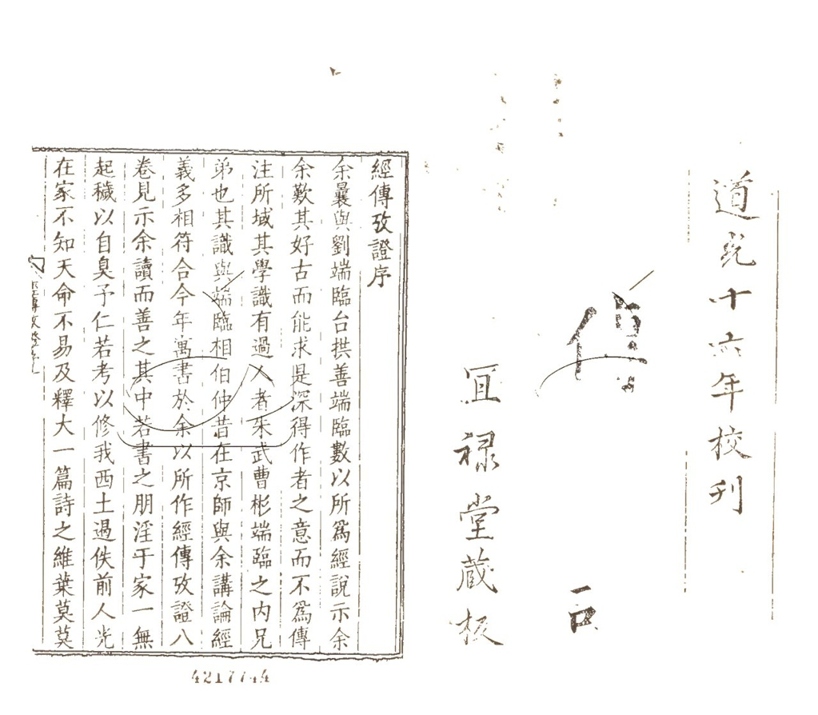 道光十六年校刊
傳
宜祿堂藏板
經傳攷證序
余曩與劉端臨台拱善端臨數以所為經說示余
余歎其好古而能求是深得作者之意而不為傳
注所域其學識有過人者朱武曹彬端臨之內兄
弟也其識與端臨相伯仲昔在京師與余講論經
義多相符合今年寓書於余以所作經傳攷證八
卷見示余讀而善之其中若書之朋淫于家一無
起穢以自臭予仁若考以修我西土遏佚前人光
在家不知天命不易及釋大一篇詩之維葉莫莫
4217744